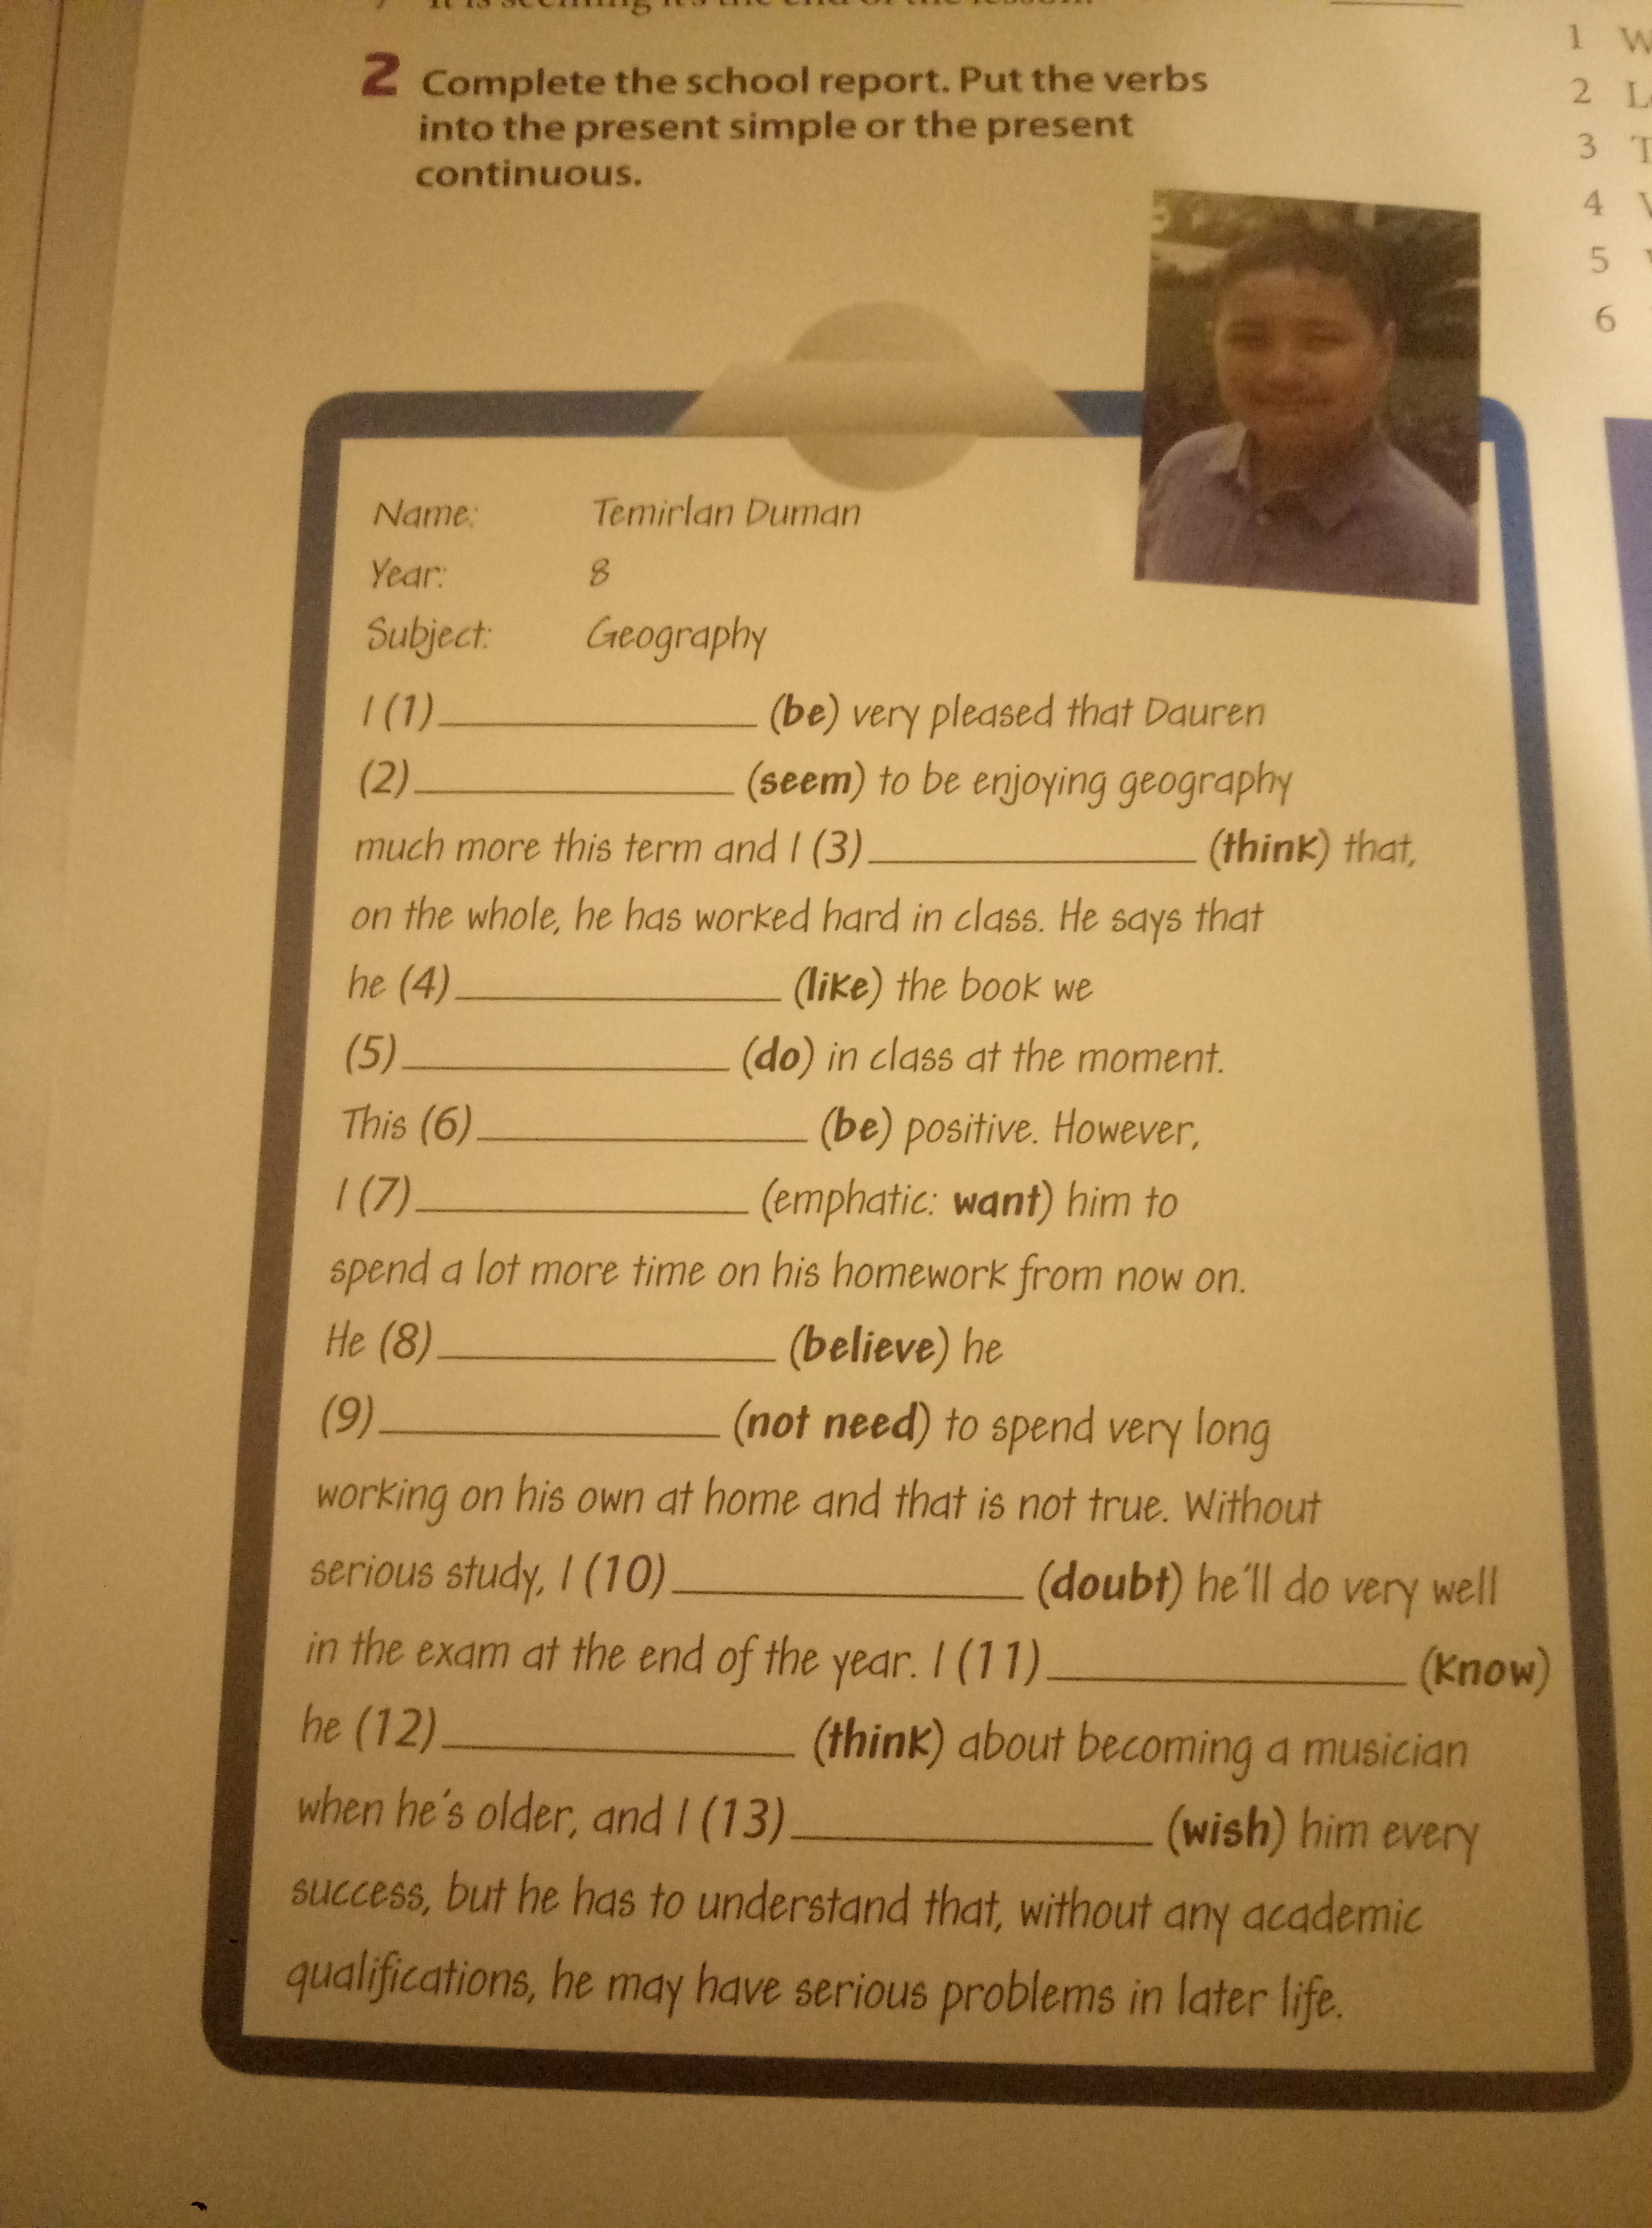 It is seeming it's the end of the lesson.
2 Complete the school report. Put the verbs
into the present simple or the present
continuous.
Name: Temirlan Duman
Year: 8
Subject: Geography
I (1)____________ (be) very pleased that Dauren
(2)____________ (seem) to be enjoying geography
much more this term and I (3)____________ (think) that,
on the whole, he has worked hard in class. He says that
he (4)____________ (like) the book we
(5)____________ (do) in class at the moment.
This (6)____________ (be) positive. However,
I (7)____________ (emphatic: want) him to
spend a lot more time on his homework from now on.
He (8)____________ (believe) he
(9)____________ (not need) to spend very long
working on his own at home and that is not true. Without
serious study, I (10)____________ (doubt) he'll do very well
in the exam at the end of the year. I (11)____________ (know)
he (12)____________ (think) about becoming a musician
when he's older, and I (13)____________ (wish) him every
success, but he has to understand that, without any academic
qualifications, he may have serious problems in later life.
1
2
3
4
5
6